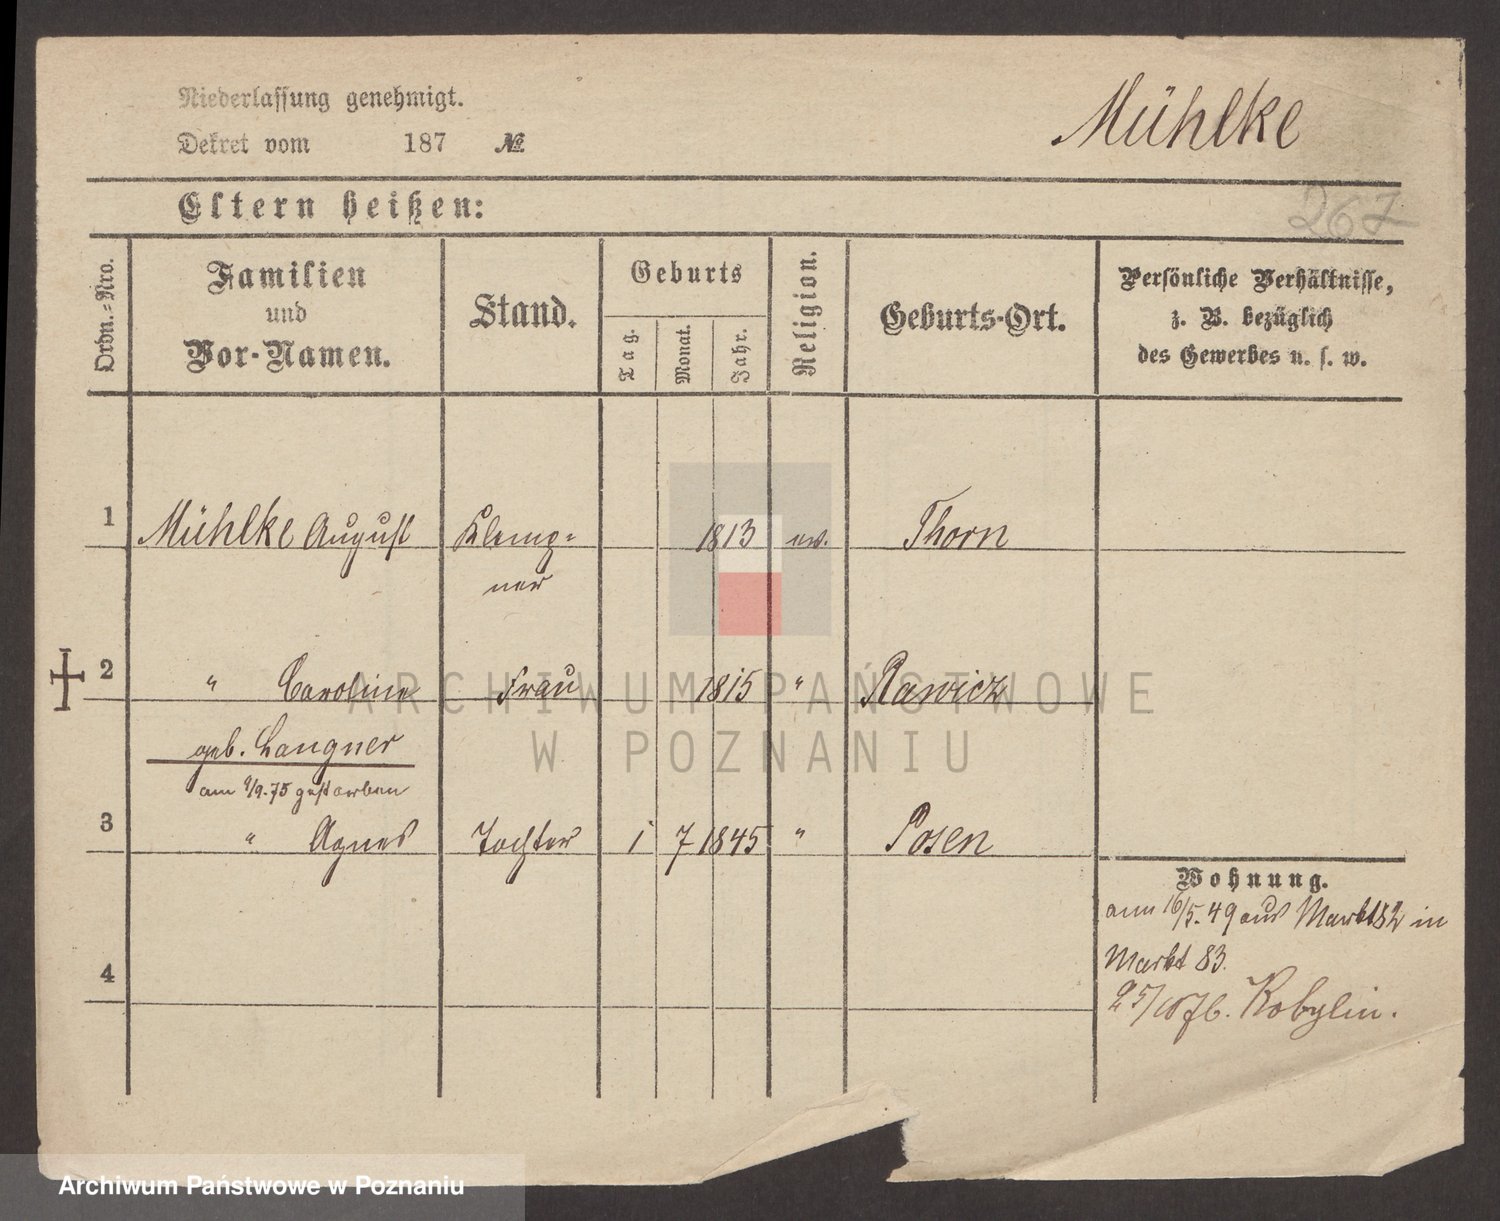 Niederlassung genehmigt.
Dekret vom 187 №
Mühlke
Eltern heißen:
267
Ordn.-Nro.
Familien
und
Vor-Namen.
Stand.
Geburts
Tag.
Monat.
Jahr.
Religion.
Geburts-Ort.
Persönliche Verhältnisse,
z. B. bezüglich
des Gewerbes u. s. w.
1 Mühlke August Klemp-
ner 1813 ev. Thorn
2 " Caroline Frau 1815 " Rawicz
geb. Langner
am 9/9.75 gestorben
3 " Agnes Tochter 1 7 1845 " Posen
Wohnung.
am 16/5.49 aus Markt 82 in
Markt 83.
25/10 76. Kobylin.
4
ARCHIWUM PAŃSTWOWE
W POZNANIU
Archiwum Państwowe w Poznaniu